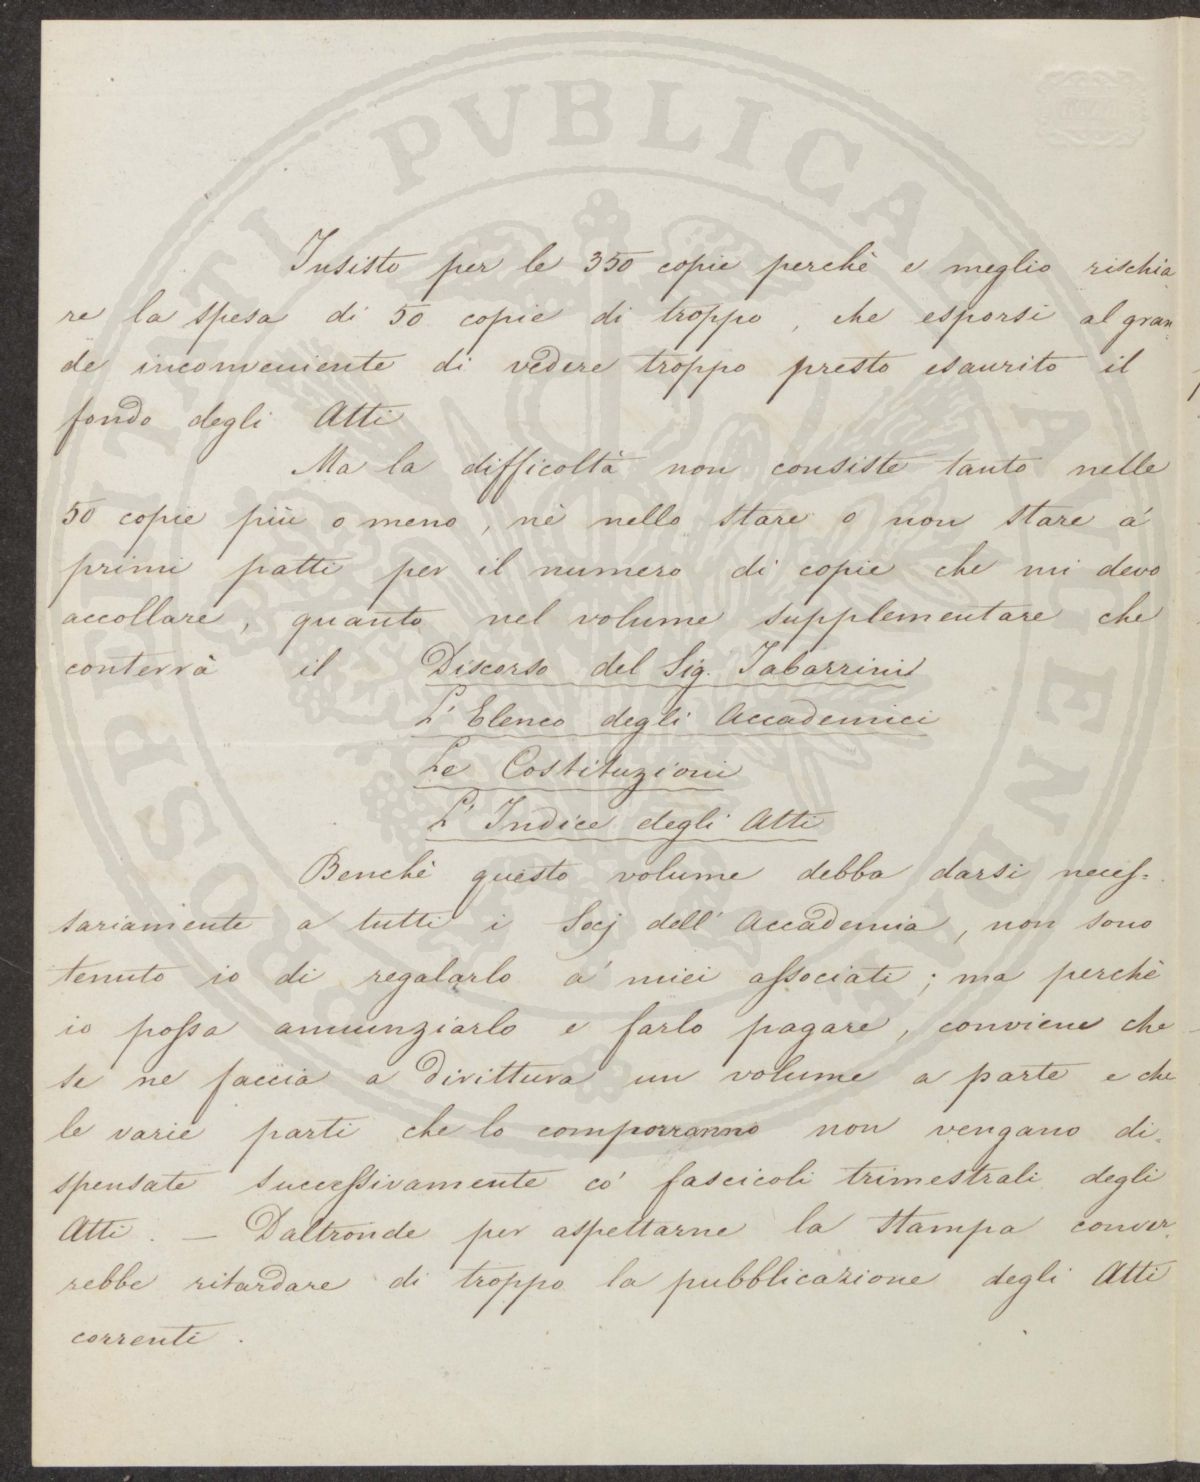 Insisto per le 350 copie perchè e meglio rischia
re la spesa di 50 copie di troppo, che esporsi al gran
de inconveniente di vedere troppo presto esaurito il
fondo degli Atti
Ma la difficoltà non consiste tanto nelle
50 copie più o meno, nè nello stare o non stare a'
primi patti per il numero di copie che mi devo
accollare, quanto nel volume supplementare che
conterrà il Discorso del Sig. Tabarrini
L'Elenco degli Accademici
Le Costituzioni
L'Indice degli Atti
Benchè questo volume debba darsi neces=
sariamente a tutti i Socj dell'Accademia, non sono
tenuto io di regalarlo a' miei associati; ma perchè
io possa annunziarlo e farlo pagare, conviene che
se ne faccia a dirittura un volume a parte e che
le varie parti che lo comporranno non vengano di=
spensate successivamente co' fascicoli trimestrali degli
Atti. — Daltronde per aspettarne la stampa conver
rebbe ritardare di troppo la pubblicazione degli Atti
correnti.
PROSPERITATI PVBLICAE AVGENDAE